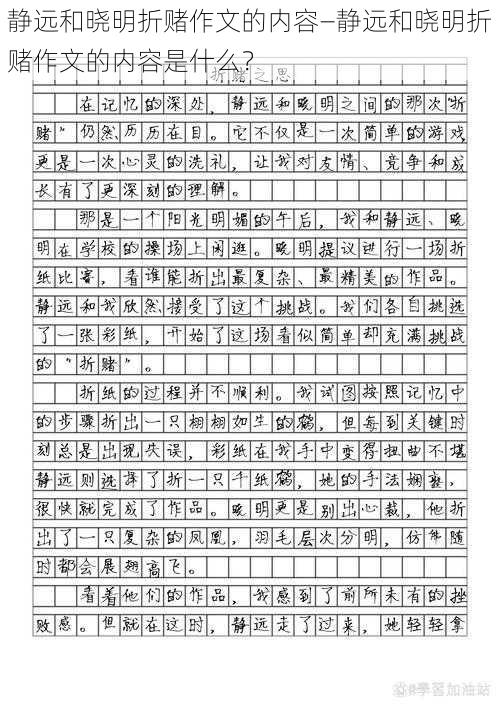 静远和晓明折赌作文的内容—静远和晓明折
赌作文的内容是什么？
折赌之思
在记忆的深处，静远和晓明之间的那次“折
赌”仍然历历在目。它不仅是一次简单的游戏，
更是一次心灵的洗礼，让我对友情、竞争和成
长有了更深刻的理解。
那是一个阳光明媚的午后，我和静远、晓
明在学校的操场上闲逛。晓明提议进行一场折
纸比赛，看谁能折出最复杂、最精美的作品。
静远和我欣然接受了这个挑战。我们各自挑选
了一张彩纸，开始了这场看似简单却充满挑战
的“折赌”。
折纸的过程并不顺利。我试图按照记忆中
的步骤折出一只栩栩如生的鹤，但每到关键时
刻总是出现失误，彩纸在我手中变得扭曲不堪
静远则选择了折一只千纸鹤，她的手法娴熟，
很快就完成了作品。晓明更是别出心裁，他折
出了一只复杂的凤凰，羽毛层次分明，仿佛随
时都会展翅高飞。
看着他们的作品，我感到了前所未有的挫
败感。但就在这时，静远走了过来，她轻轻拿
學習加油站